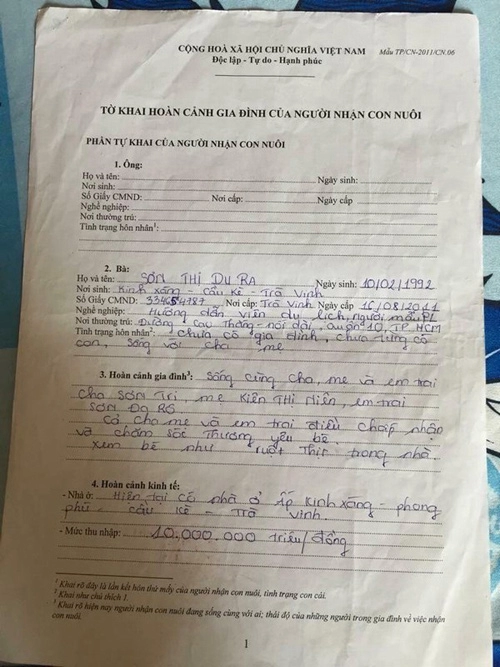 CỘNG HOÀ XÃ HỘI CHỦ NGHĨA VIỆT NAM
Mẫu TP/CN-2011/CN.06
Độc lập - Tự do - Hạnh phúc
TỜ KHAI HOÀN CẢNH GIA ĐÌNH CỦA NGƯỜI NHẬN CON NUÔI
PHẦN TỰ KHAI CỦA NGƯỜI NHẬN CON NUÔI
1. Ông:
Họ và tên: Ngày sinh:
Nơi sinh:
Số Giấy CMND: Nơi cấp: Ngày cấp
Nghề nghiệp:
Nơi thường trú:
Tình trạng hôn nhân1:
2. Bà:
Họ và tên: SƠN THỊ DU RA Ngày sinh: 10/02/1992
Nơi sinh: Kinh Xáng - Cầu Kè - Trà Vinh
Số Giấy CMND: 334654787 Nơi cấp: Trà Vinh Ngày cấp 16/08/2011
Nghề nghiệp: Hướng dẫn viên du lịch, người mẫu
Nơi thường trú: Đường Cao Thắng - nối dài, Quận 10, TP HCM
Tình trạng hôn nhân2: chưa có gia đình, chưa từng có
con, sống với cha mẹ
3. Hoàn cảnh gia đình3: Sống cùng cha, mẹ và em trai
cha SƠN TRI, mẹ KIÊN THỊ HIÊN, em trai
SƠN ĐA RÔ
Cả cha mẹ và em trai điều chấp nhận
và chăm sóc thương yêu bé.
xem bé như ruột thịt trong nhà.
4. Hoàn cảnh kinh tế:
- Nhà ở: Hiện tại có nhà ở ấp Kinh Xáng - phong
phú - cầu kè - Trà Vinh.
- Mức thu nhập: 10.000.000 triệu/đồng
1 Khai rõ đây là lần kết hôn thứ mấy của người nhận con nuôi, tình trạng con cái.
2 Khai như chú thích 1.
3 Khai rõ hiện nay người nhận con nuôi đang sống cùng với ai; thái độ của những người trong gia đình về việc nhận
con nuôi.
1